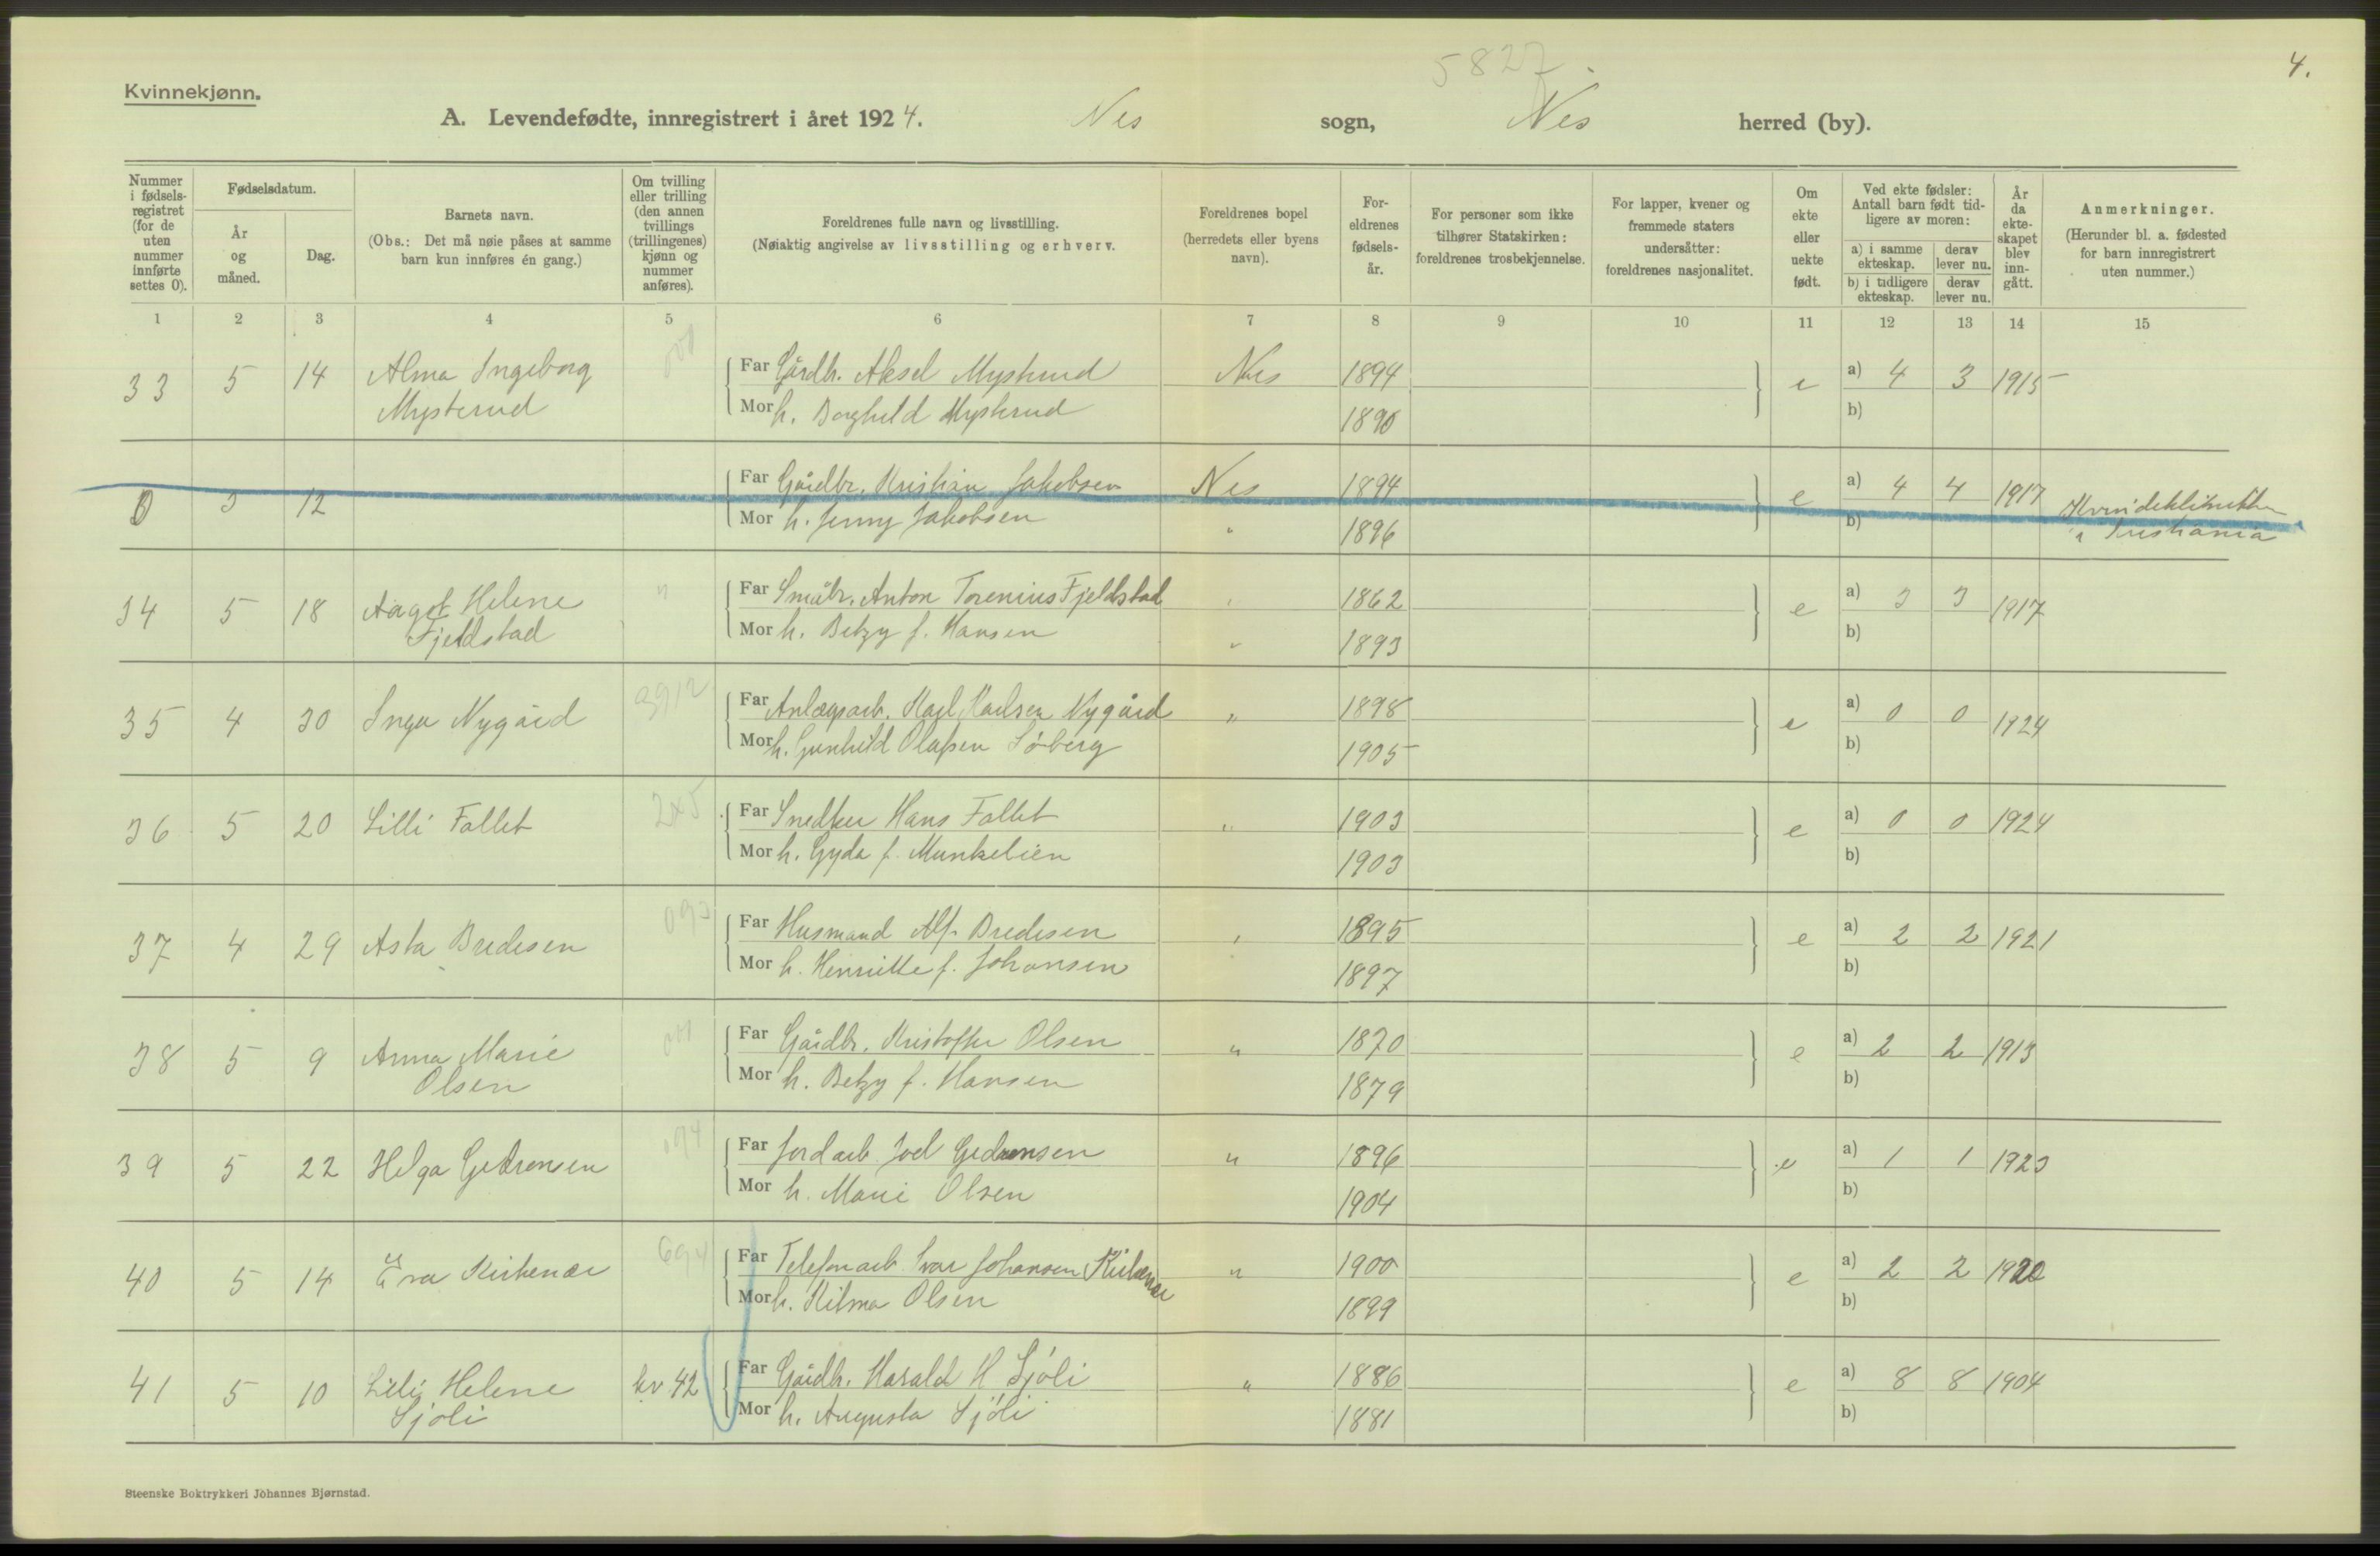 5827
4.
Kvinnekjønn.
A. Levendefødte, innregistrert i året 1924. Nes sogn, Nes herred (by).
Nummer i fødsels-registret (for de uten nummer innførte settes 0).
Fødselsdatum.
År og måned.
Dag.
Barnets navn.
(Obs.: Det må nøie påses at samme barn kun innføres én gang.)
Om tvilling eller trilling (den annen tvillings (trillingenes) kjønn og nummer anføres).
Foreldrenes fulle navn og livsstilling.
(Nøiaktig angivelse av livsstilling og erhverv.
Foreldrenes bopel (herredets eller byens navn).
For-eldrenes fødsels-år.
For personer som ikke tilhører Statskirken: foreldrenes trosbekjennelse.
For lapper, kvener og fremmede staters undersåtter: foreldrenes nasjonalitet.
Om ekte eller uekte født.
Ved ekte fødsler: Antall barn født tid-ligere av moren:
a) i samme ekteskap. derav lever nu.
b) i tidligere ekteskap. derav lever nu.
År da ekte-skapet blev inn-gått.
Anmerkninger.
(Herunder bl. a. fødested for barn innregistrert uten nummer.)
1 2 3 4 5 6 7 8 9 10 11 12 13 14 15
33 5 14 Alma Ingeborg Far Gårdbr. Aksel Mysterud Nes 1894 e a) 4 3 1915
Mysterud Mor h. Borghild Mysterud 1890 b)
0 3 12 Far Gårdbr. Kristian Jakobsen Nes 1894 e a) 4 4 1917 Kvindeklinikken
Mor h. Jenny Jakobsen " 1896 b) i Kristiania
34 5 18 Aagot Helene " Far Småbr. Anton Torenius Fjeldstad " 1862 e a) 3 3 1917
Fjeldstad Mor h. Betzy f. Hansen " 1893 b)
35 4 30 Inga Nygård Far Anlægsarb. Karl Karlsen Nygård " 1898 e a) 0 0 1924
Mor h. Gunhild Olafsen Söberg 1905 b)
36 5 20 Lilli Fallet 2x5 Far Snedker Hans Fallet " 1903 e a) 0 0 1924
Mor h. Gyda f. Munkelien 1903 b)
37 4 29 Asta Bredesen Far Husmand Alf Bredesen " 1895 e a) 2 2 1921
Mor h. Henriette f. Johansen 1897 b)
38 5 9 Anna Marie Far Gårdbr. Kristoffer Olsen " 1870 e a) 2 2 1913
Olsen Mor h. Betzy f. Hansen 1879 b)
39 5 22 Helga Gedronsen Far Jordarb. Joel Gedronsen " 1896 e a) 1 1 1923
Mor h. Marie Olsen 1904 b)
40 5 14 Eva Kirkenær Far Telefonarb. Ivar Johansen Kirkenær " 1900 e a) 2 2 1920
Mor h. Hilma Olsen 1899 b)
41 5 10 Lilli Helene kv. 42 Far Gårdbr. Harald H Sjöli " 1886 e a) 8 8 1904
Sjöli Mor h. Augusta Sjöli 1881 b)
Steenske Boktrykkeri Johannes Bjørnstad.